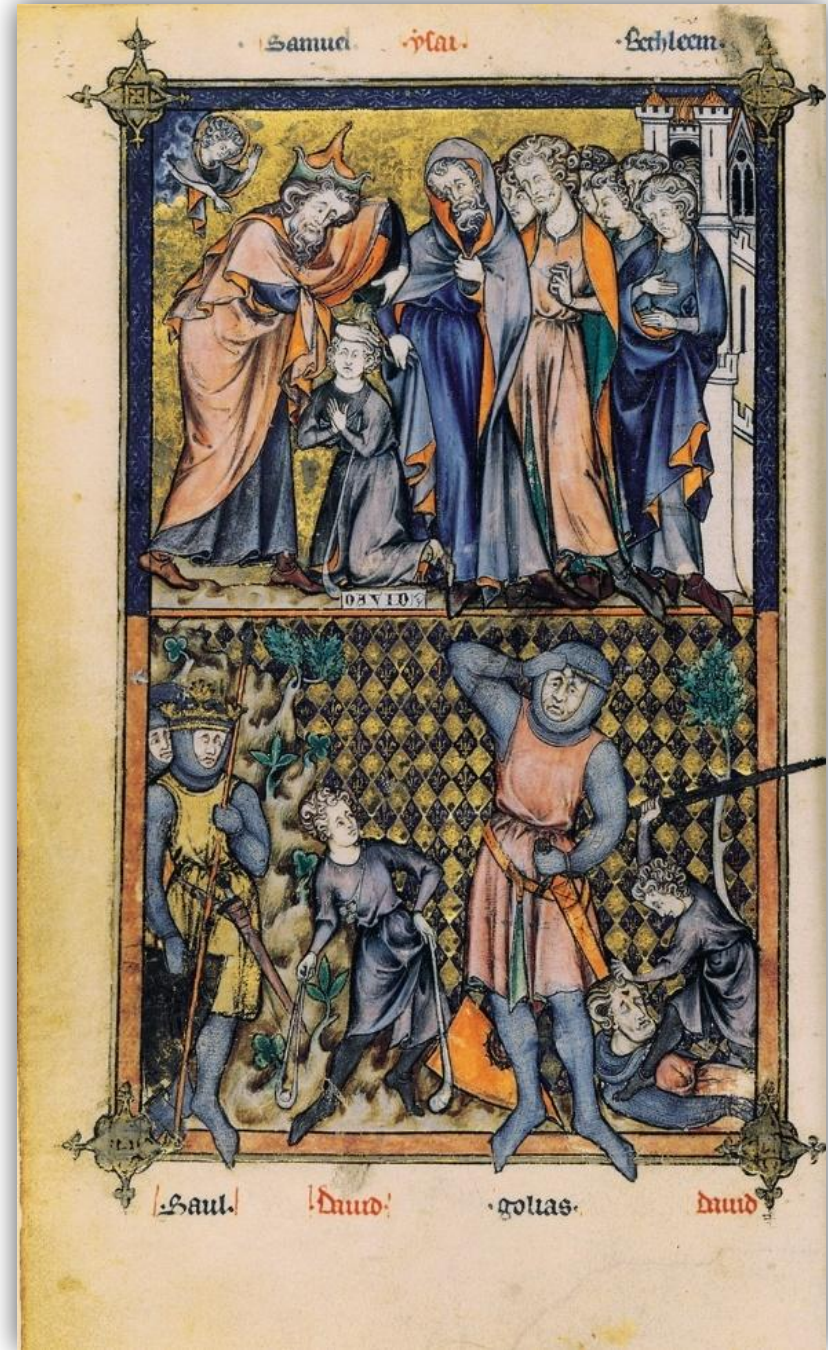 ·Samuel· ·ysai· ·Bethleem·
DAVID
·Saul· ·Dauid· ·golias· dauid